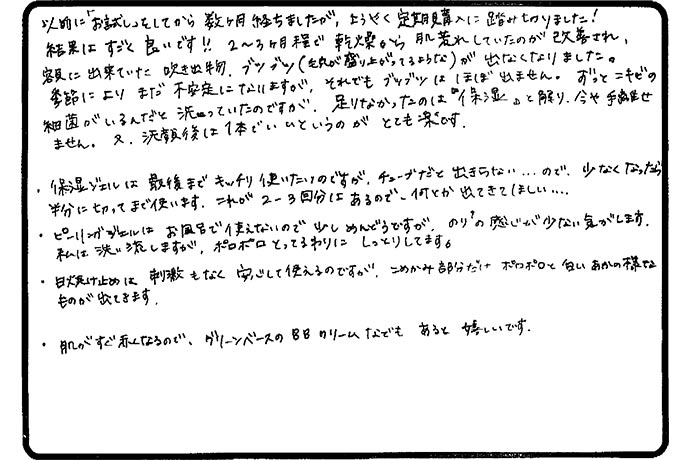 以前に「お試し」をしてから数ヶ月経ちましたが、ようやく定期購入に踏みきりました！
結果はすごく良いです!! 2〜3ヶ月程で乾燥から肌荒れしていたのが改善され、
容易に出来ていた吹き出物、ブツブツ(毛穴が盛り上がってるような)が出なくなりました。
季節によりまだ不安定になりますが、それでもブツブツはほぼ出ません。ずっとニキビの
細菌がいるんだと洗っていたのですが、足りなかったのは『保湿』と解り、今や手離せ
ません。又、洗顔後は1本でいいというのがとても楽です。
・保湿ジェルは最後までキッチリ使いたいのですが、チューブだと出きらない…ので、少なくなったら
半分に切ってまで使います。これが2-3回分はあるので、何とか出てきてほしい…
・ピーリングジェルはお風呂で使えないので出しめんどうですが、のり?の感じが少ない気がします。
私は洗い流しますが、ポロポロとってるわりにしっとりしてます。
・日焼け止めは刺激もなく安心して使えるのですが、こめかみ部分だけポロポロと白いあかの様な
ものが出てきます。
・肌がすぐ赤くなるので、グリーンベースのBBクリームなどもあると嬉しいです.